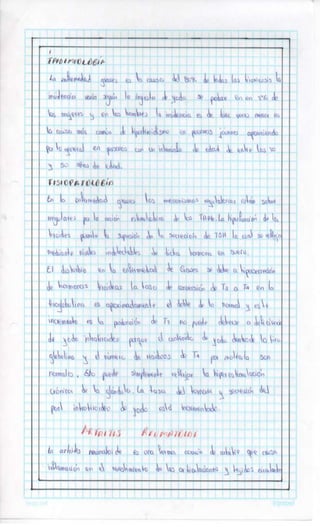 EPIDEMIOLOGIA
La enfermedad graves es la causa del 80% de todas las hipertiroidis la
incidencia varia según la ingesta de yodo se padece en un 2% de
las mujeres y en los hombres la incidencia es de
la causa más común de hipertiroidismo en pacientes jovenes apareciendo
por lo general en pacientes con un intervalo de edad de entre los 20
y 50 años de edad.
FISIOPATOLOGIA
En la enfermedad graves los mecanismos reguladores
por la acción estimulante de la la hiperfunción de la
tiroides la supresión de la secreción de TSH la cual se refleja
mediante niveles indetectables de dicha hormona en suero.
El en la enfermedad de Graves se debe a hipersecreción
de hormonas tiroideas la tasa de conversión de T4 a T3 en la
tiroglobulina es aproximadamente el doble de lo normal y este
incremento es la producción de T3 no puede deberse a deficiencia
de yodo intratiroideo porque el contenido de yodo dentro de la tiro
globulina y el número de residuos de T4 por molécula son
normales. Sólo puede simplemente reflejar la hiperestimulación
crónica de la glandula. La tasa del y secreción del
pool intratiroideo de yodo está incrementada.
ARTRITIS REUMATOIDE
La artritis reumatoide es una forma común de artritis que causa
inflamación en el revestimiento de las articulaciones y tejidos